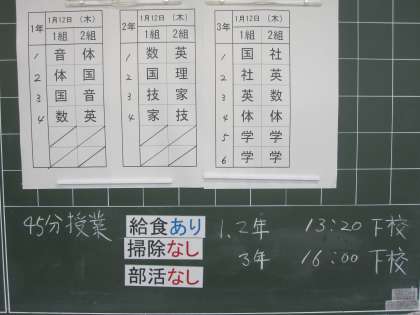 1年 1月12日 (木)
1組 2組
1 音 体
2 体 国
3 国 音
4 数 英
2年 1月12日 (木)
1組 2組
1 数 英
2 国 理
3 技 家
4 家 技
3年 1月12日 (木)
1組 2組
1 国 社
2 社 英
3 英 数
4 体 体
5 学 学
6 学 学
45分授業
給食あり
掃除なし
部活なし
1、2年 13:20 下校
3年 16:00 下校